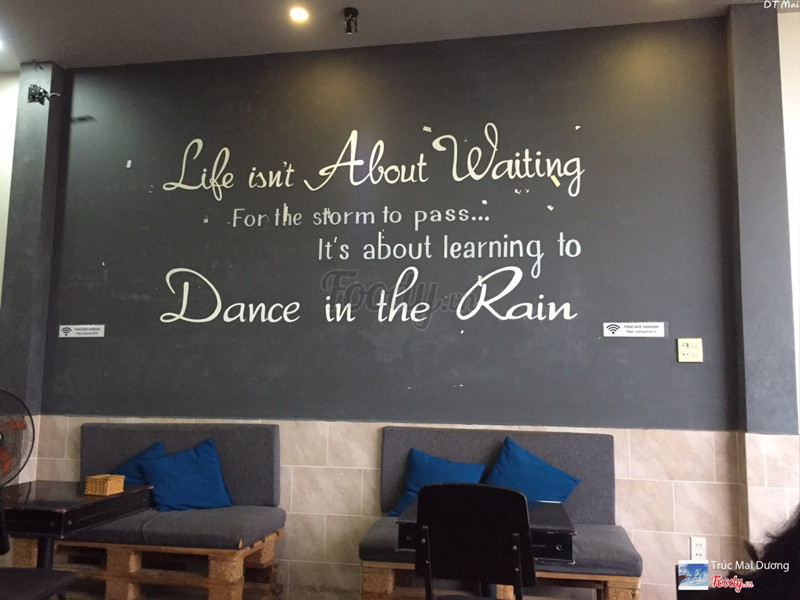 DT Mai
Life isn't About Waiting
For the storm to pass...
It's about learning to
Dance in the Rain
Foody.vn
Trúc Mai Dương
Foody.vn